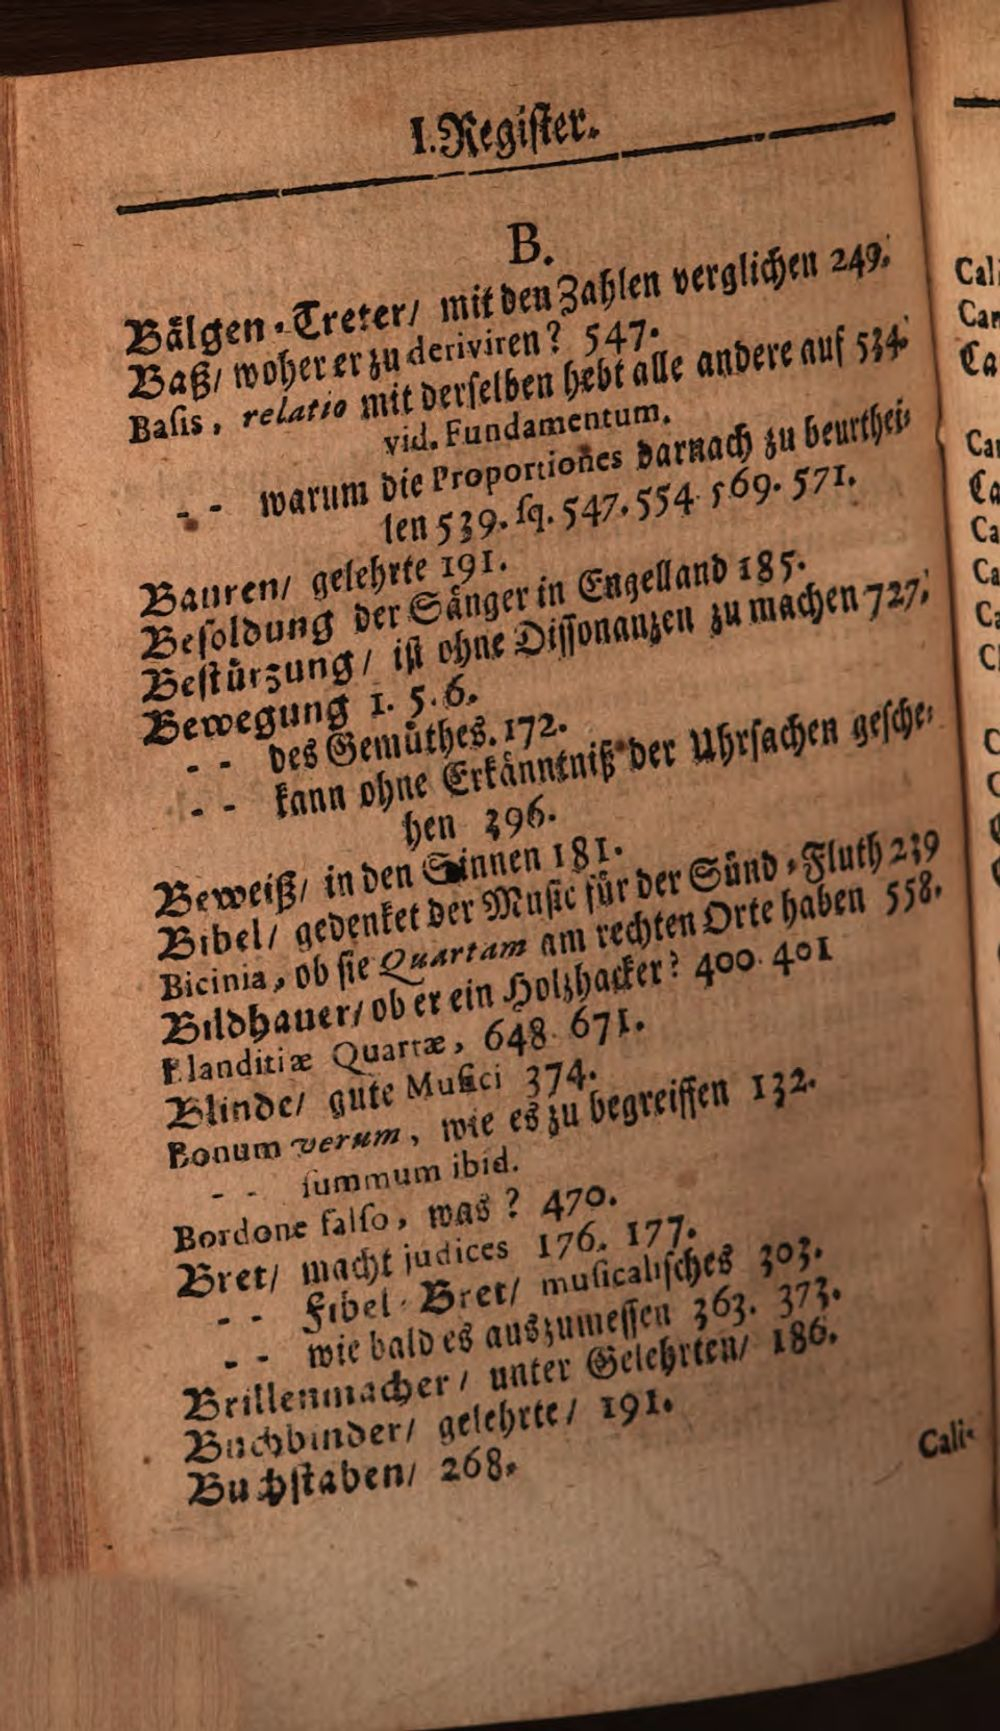 I. Regiſter.
B.
Bälgen-Treter/ mit den Zahlen verglichen 249.
Baß/ woher er zu deriviren? 547.
Baſis, relatio mit derſelben hebt alle andere auf 534.
vid. Fundamentum.
- - warum die Proportiones darnach zu beurthei-
len 539. ſq. 547. 554. 569. 571.
Bauren/ gelehrte 191.
Beſoldung der Sänger in Engelland 185.
Beſtürzung/ iſt ohne Diſſonanzen zu machen 727.
Bewegung 1. 5. 6.
- - des Gemüthes. 172.
- - kann ohne Erkänntniß der Uhrſachen geſche-
hen 396.
Beweiß/ in den Sinnen 181.
Bibel/ gedenket der Muſic für der Sünd-Fluth 239
Bicinia, ob ſie Quartam am rechten Orte haben 558.
Bildhauer/ ob er ein Holzhacker? 400. 401
Blanditiæ Quartæ, 648. 671.
Blinde/ gute Muſici 374.
Bonum verum, wie es zu begreiffen 132.
- - ſummum ibid.
Bordone falſo, was? 470.
Bret/ macht judices 176. 177.
- - Fibel-Bret/ muſicaliſches 303.
- - wie bald es auszumeſſen 363. 373.
Brillenmacher/ unter Gelehrten/ 186.
Buchbinder/ gelehrte/ 191.
Buchſtaben/ 268.
Cali-
Cali
Car
Ca
Car
Ca
Ca
Ca
Ca
C
C
C